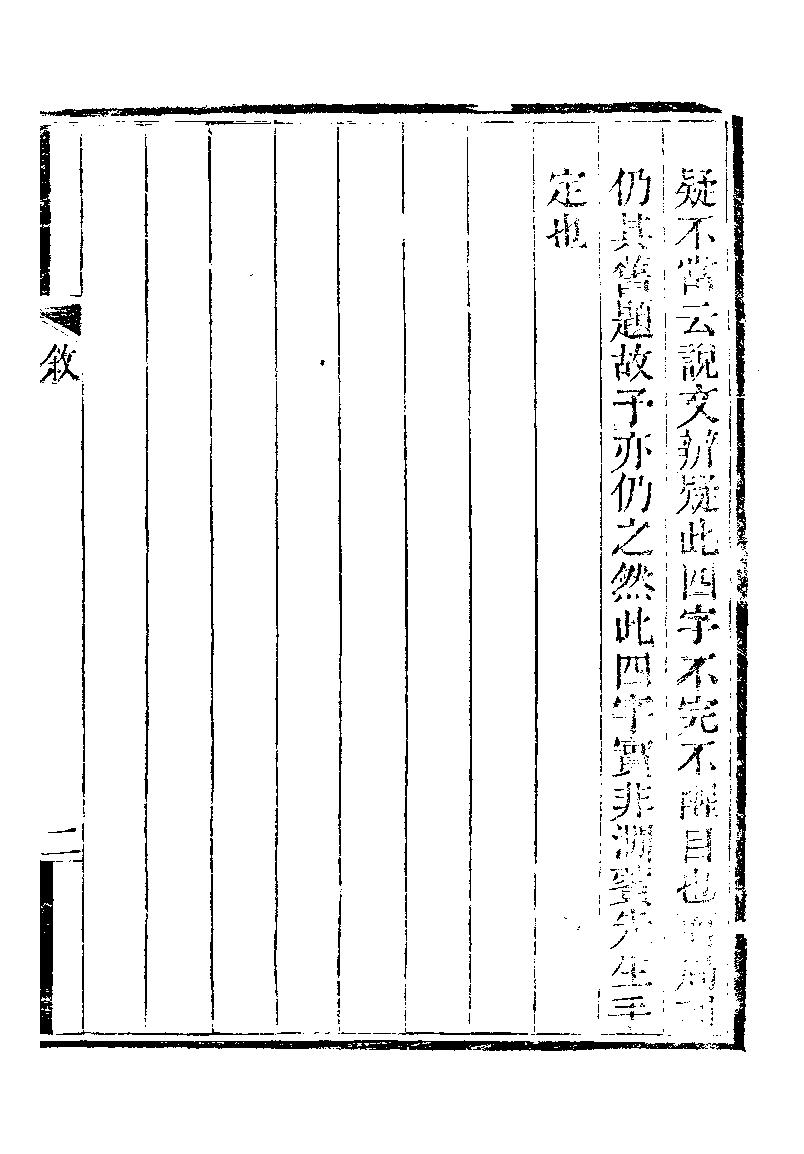 疑不當云說文辨疑此四字不完不醒目也局
仍其舊題故予亦仍之然此四字實非澗薲先生手
定也
敘
二